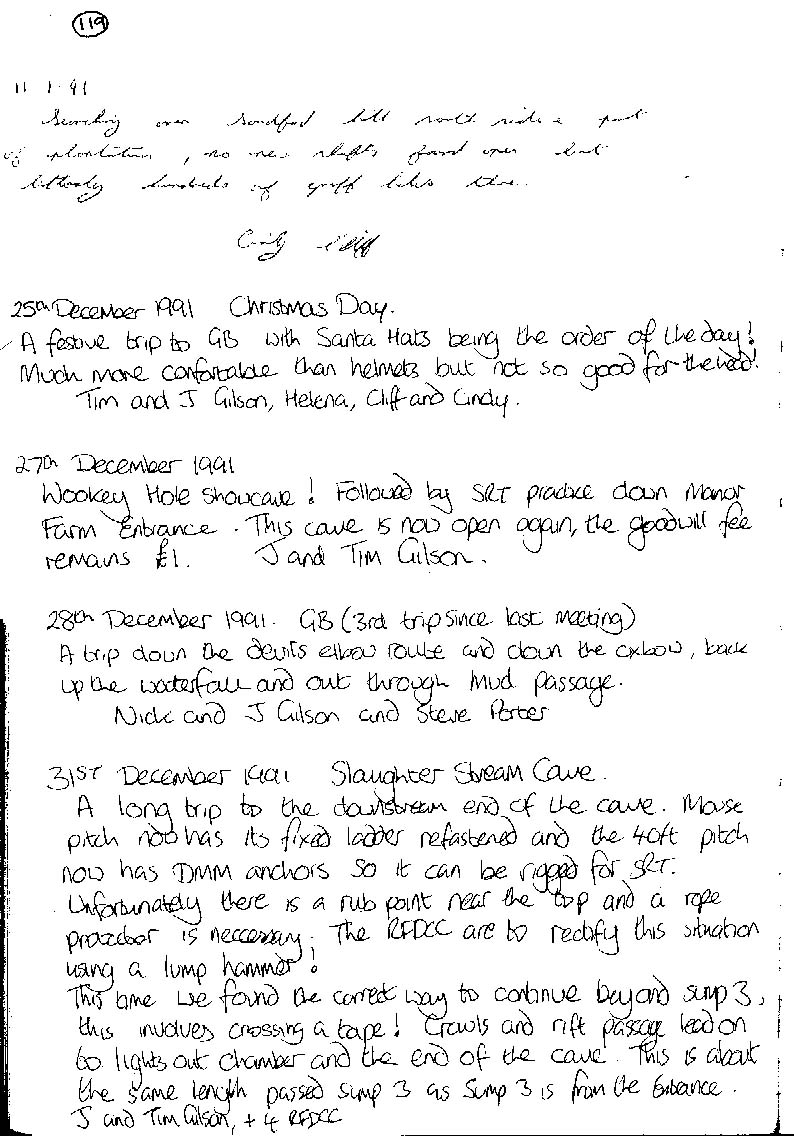 119
11 · 1 · 91
Searching over Sandford hill north side & part
of plantation, no new shafts found over but
literally hundreds of gruff likes there.
25th December 1991 Christmas Day.
A festive trip to GB with Santa Hats being the order of the day!
Much more confortable than helmets but not so good for the head!
Tim and J Gilson, Helena, Cliff and Cindy.
27th December 1991
Wookey Hole Showcave! Followed by SRT practice down Manor
Farm Entrance. This cave is now open again, the goodwill fee
remains £1. J and Tim Gilson.
28th December 1991. GB (3rd trip since last meeting)
A trip down the devils elbow route and down the oxbow, back
up the waterfall and out through Mud Passage.
Nick and J Gilson and Steve Porter
31ST December 1991 Slaughter Stream Cave.
A long trip to the downstream end of the cave. Mouse
pitch now has its fixed ladder refastened and the 40ft pitch
now has DMM anchors so it can be rigged for SRT.
Unfortunately there is a rub point near the top and a rope
protector is neccessary. The RFDCC are to rectify this situation
using a lump hammer!
This time we found the correct way to continue beyond sump 3,
this involves crossing a tape! Crawls and rift passage lead on
to lights out chamber and the end of the cave. This is about
the same length passed sump 3 as Sump 3 is from the Entrance.
J and Tim Gilson, + 4 RFDCC